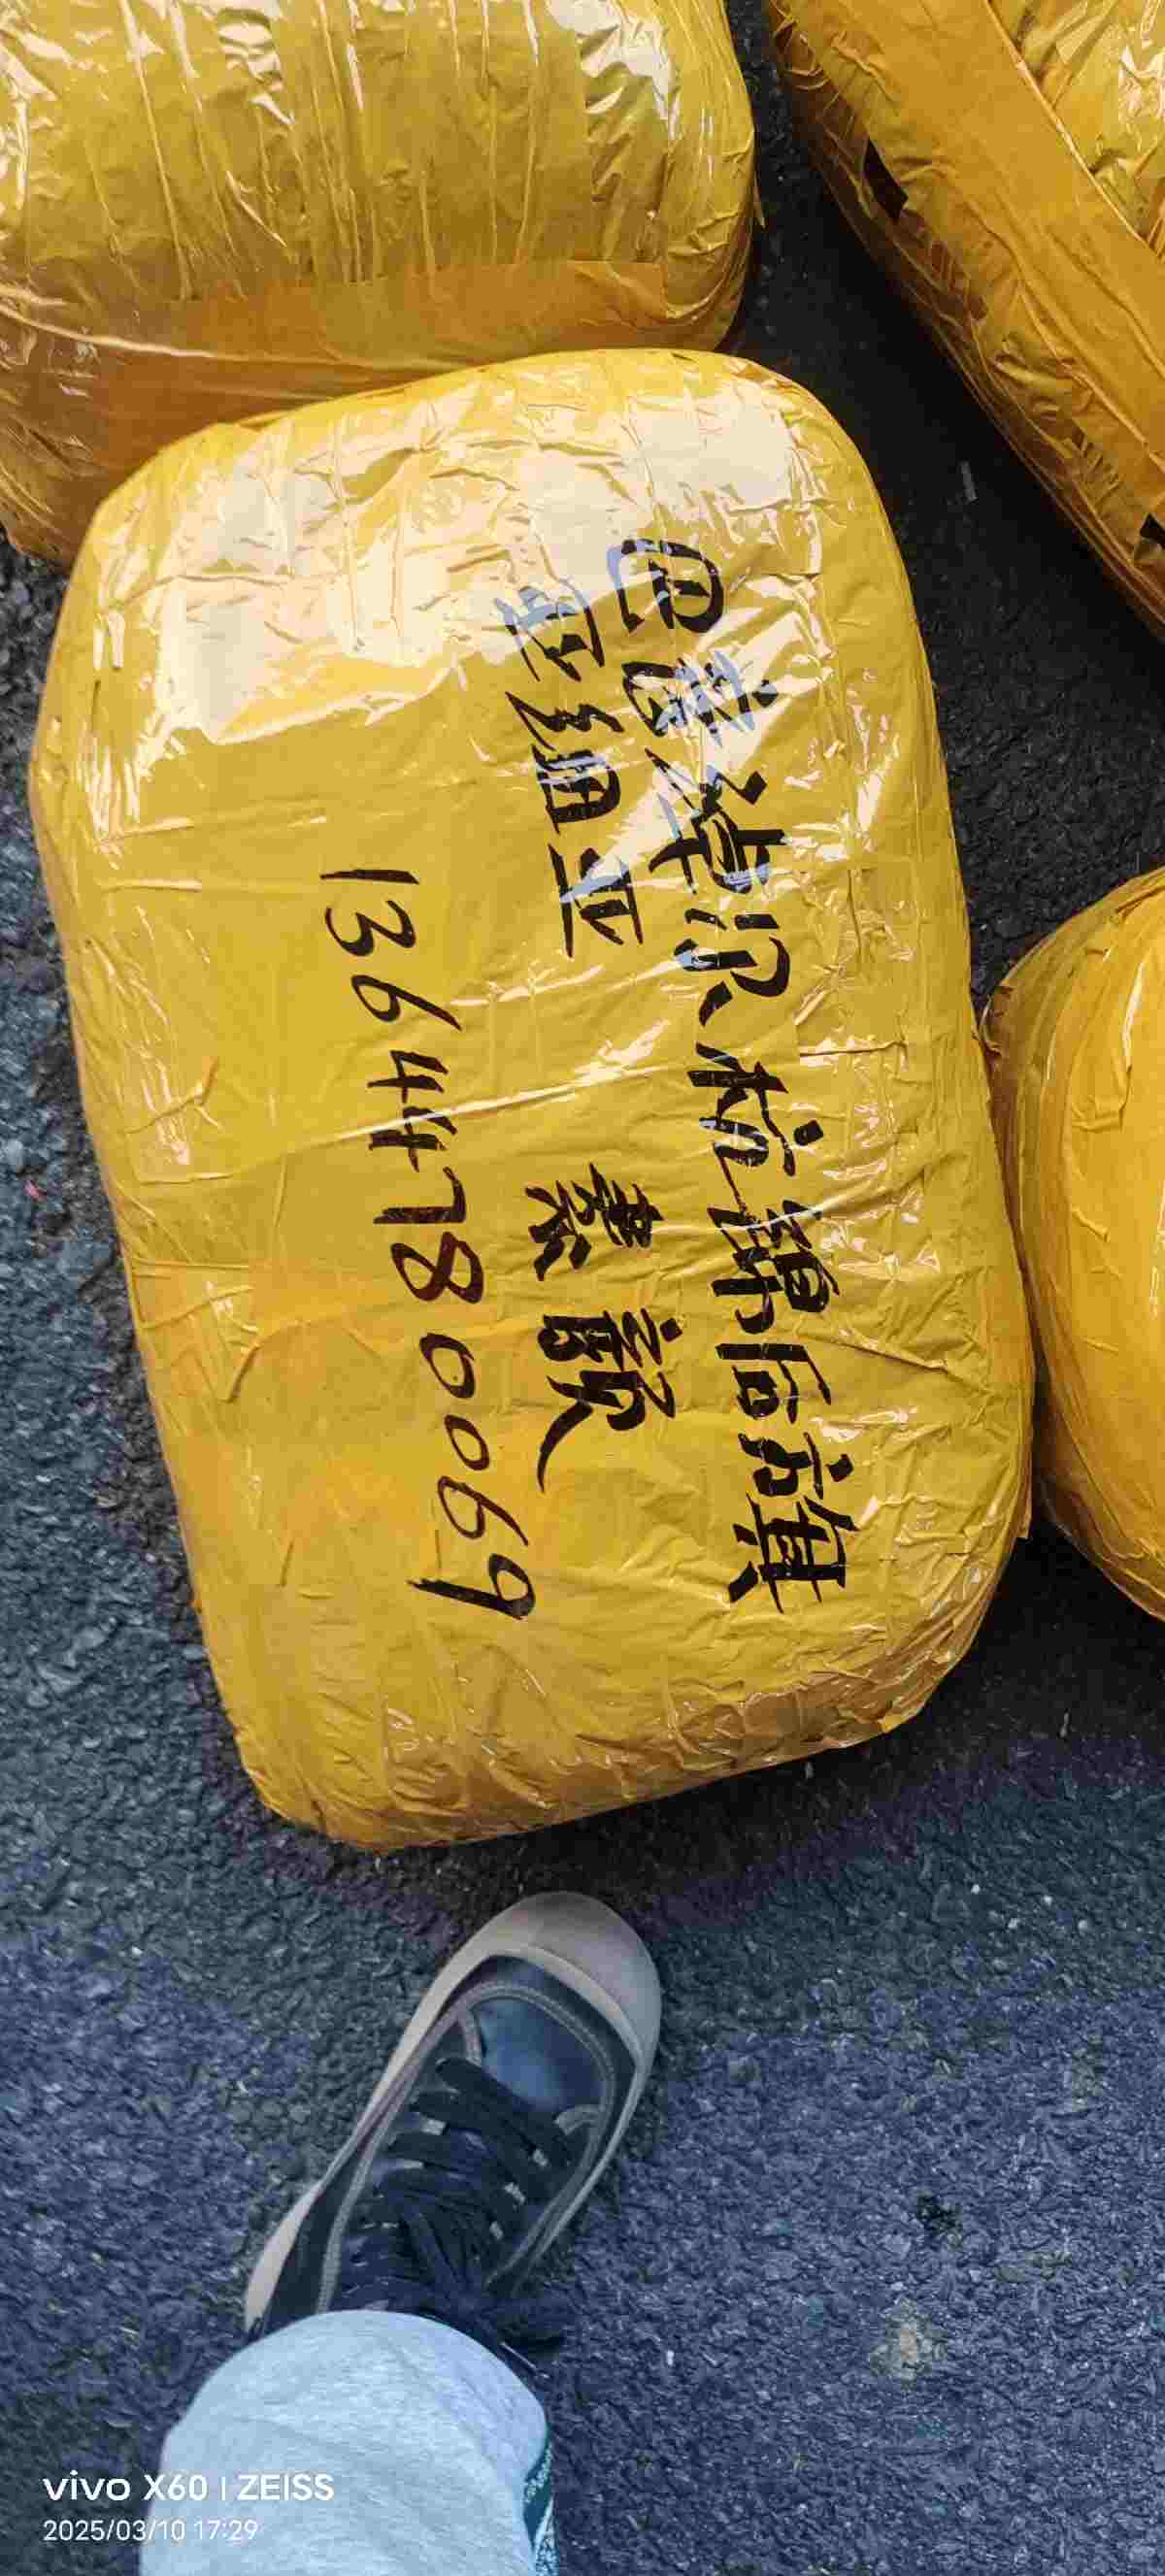 巴彦淖尔市杭锦后旗
亚细亚 素歆
13644780069
vivo X60 | ZEISS
2025/03/10 17:29